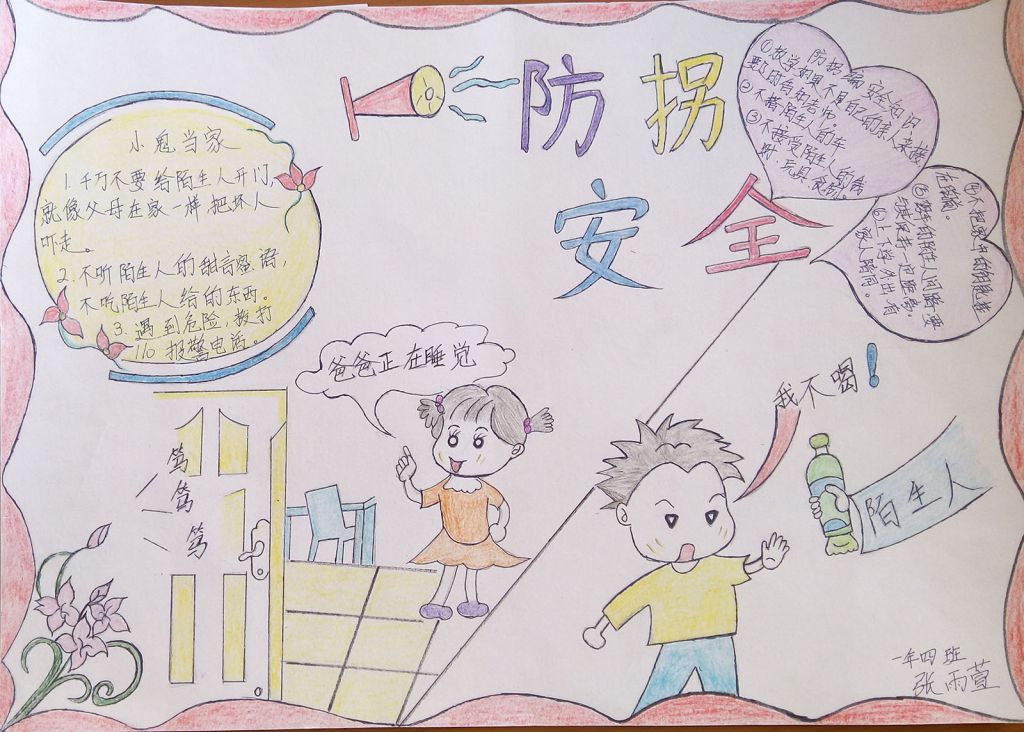 防拐
安全
小鬼当家
1.千万不要给陌生人开门,
就像父母在家一样,把坏人
吓走。
2.不听陌生人的甜言蜜语,
不吃陌生人给的东西。
3.遇到危险,拨打
110报警电话。
防拐骗安全知识
①放学如果不是自己的亲人来接
要及时告知老师
②不搭陌生人的车
③不接受陌生人的钱
财、玩具、食物。
④不把家中的钥匙挂
在
⑤碰到陌生人问路,要
与其保持一定距离
⑥上下学、外出,有
家人陪同。
爸爸正在睡觉
笃
笃
笃
我不喝!
陌生人
一年四班
张雨萱